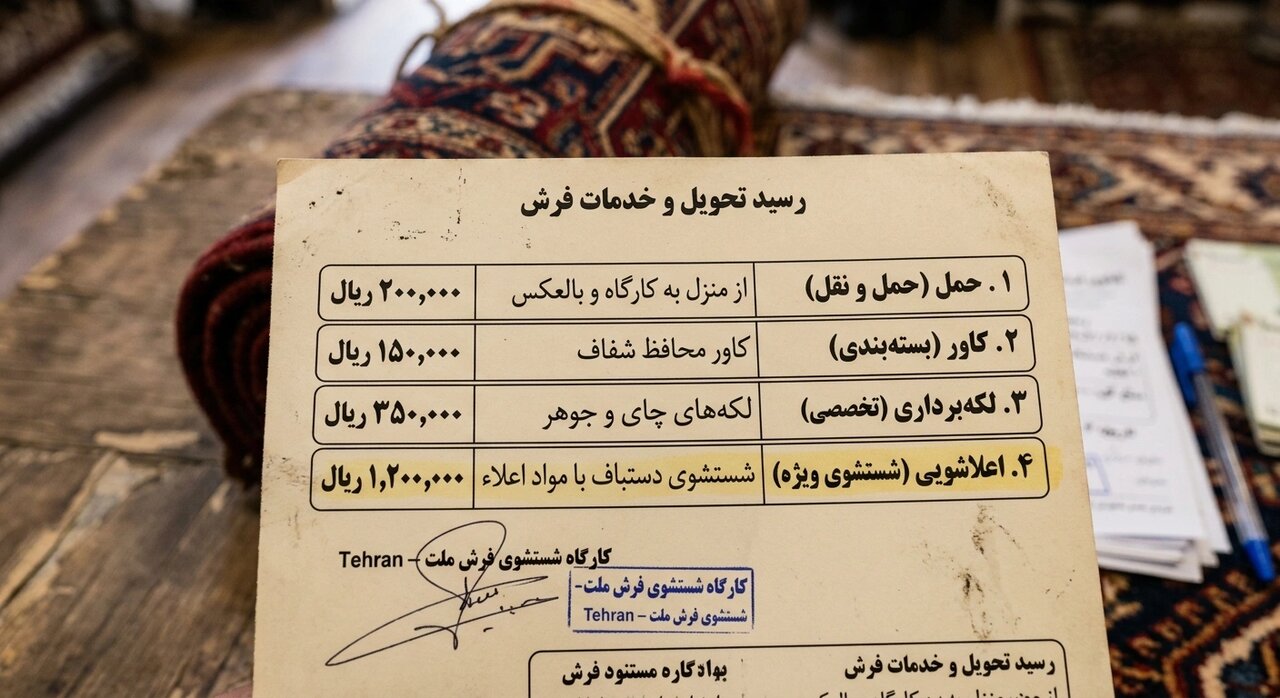 رسید تحویل و خدمات فرش
۱. حمل (حمل و نقل) از منزل به کارگاه و بالعکس ۲۰۰,۰۰۰ ریال
۲. کاور (بسته‌بندی) کاور محافظ شفاف ۱۵۰,۰۰۰ ریال
۳. لکه‌برداری (تخصصی) لکه‌های چای و جوهر ۳۵۰,۰۰۰ ریال
۴. اعلاشویی (شستشوی ویژه) شستشوی دستباف با مواد اعلاء ۱,۲۰۰,۰۰۰ ریال
کارگاه شستشوی فرش ملت – Tehran
کارگاه شستشوی فرش ملت-
شستشوی فرش ملت – Tehran
رسید تحویل و خدمات فرش بهادگاره مستنود فرش